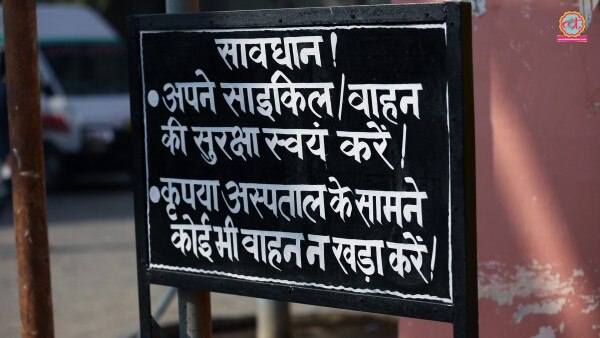 सावधान!
•अपने साइकिल/वाहन
की सुरक्षा स्वयं करें!
•कृपया अस्पताल के सामने
कोई भी वाहन न खड़ा करें!